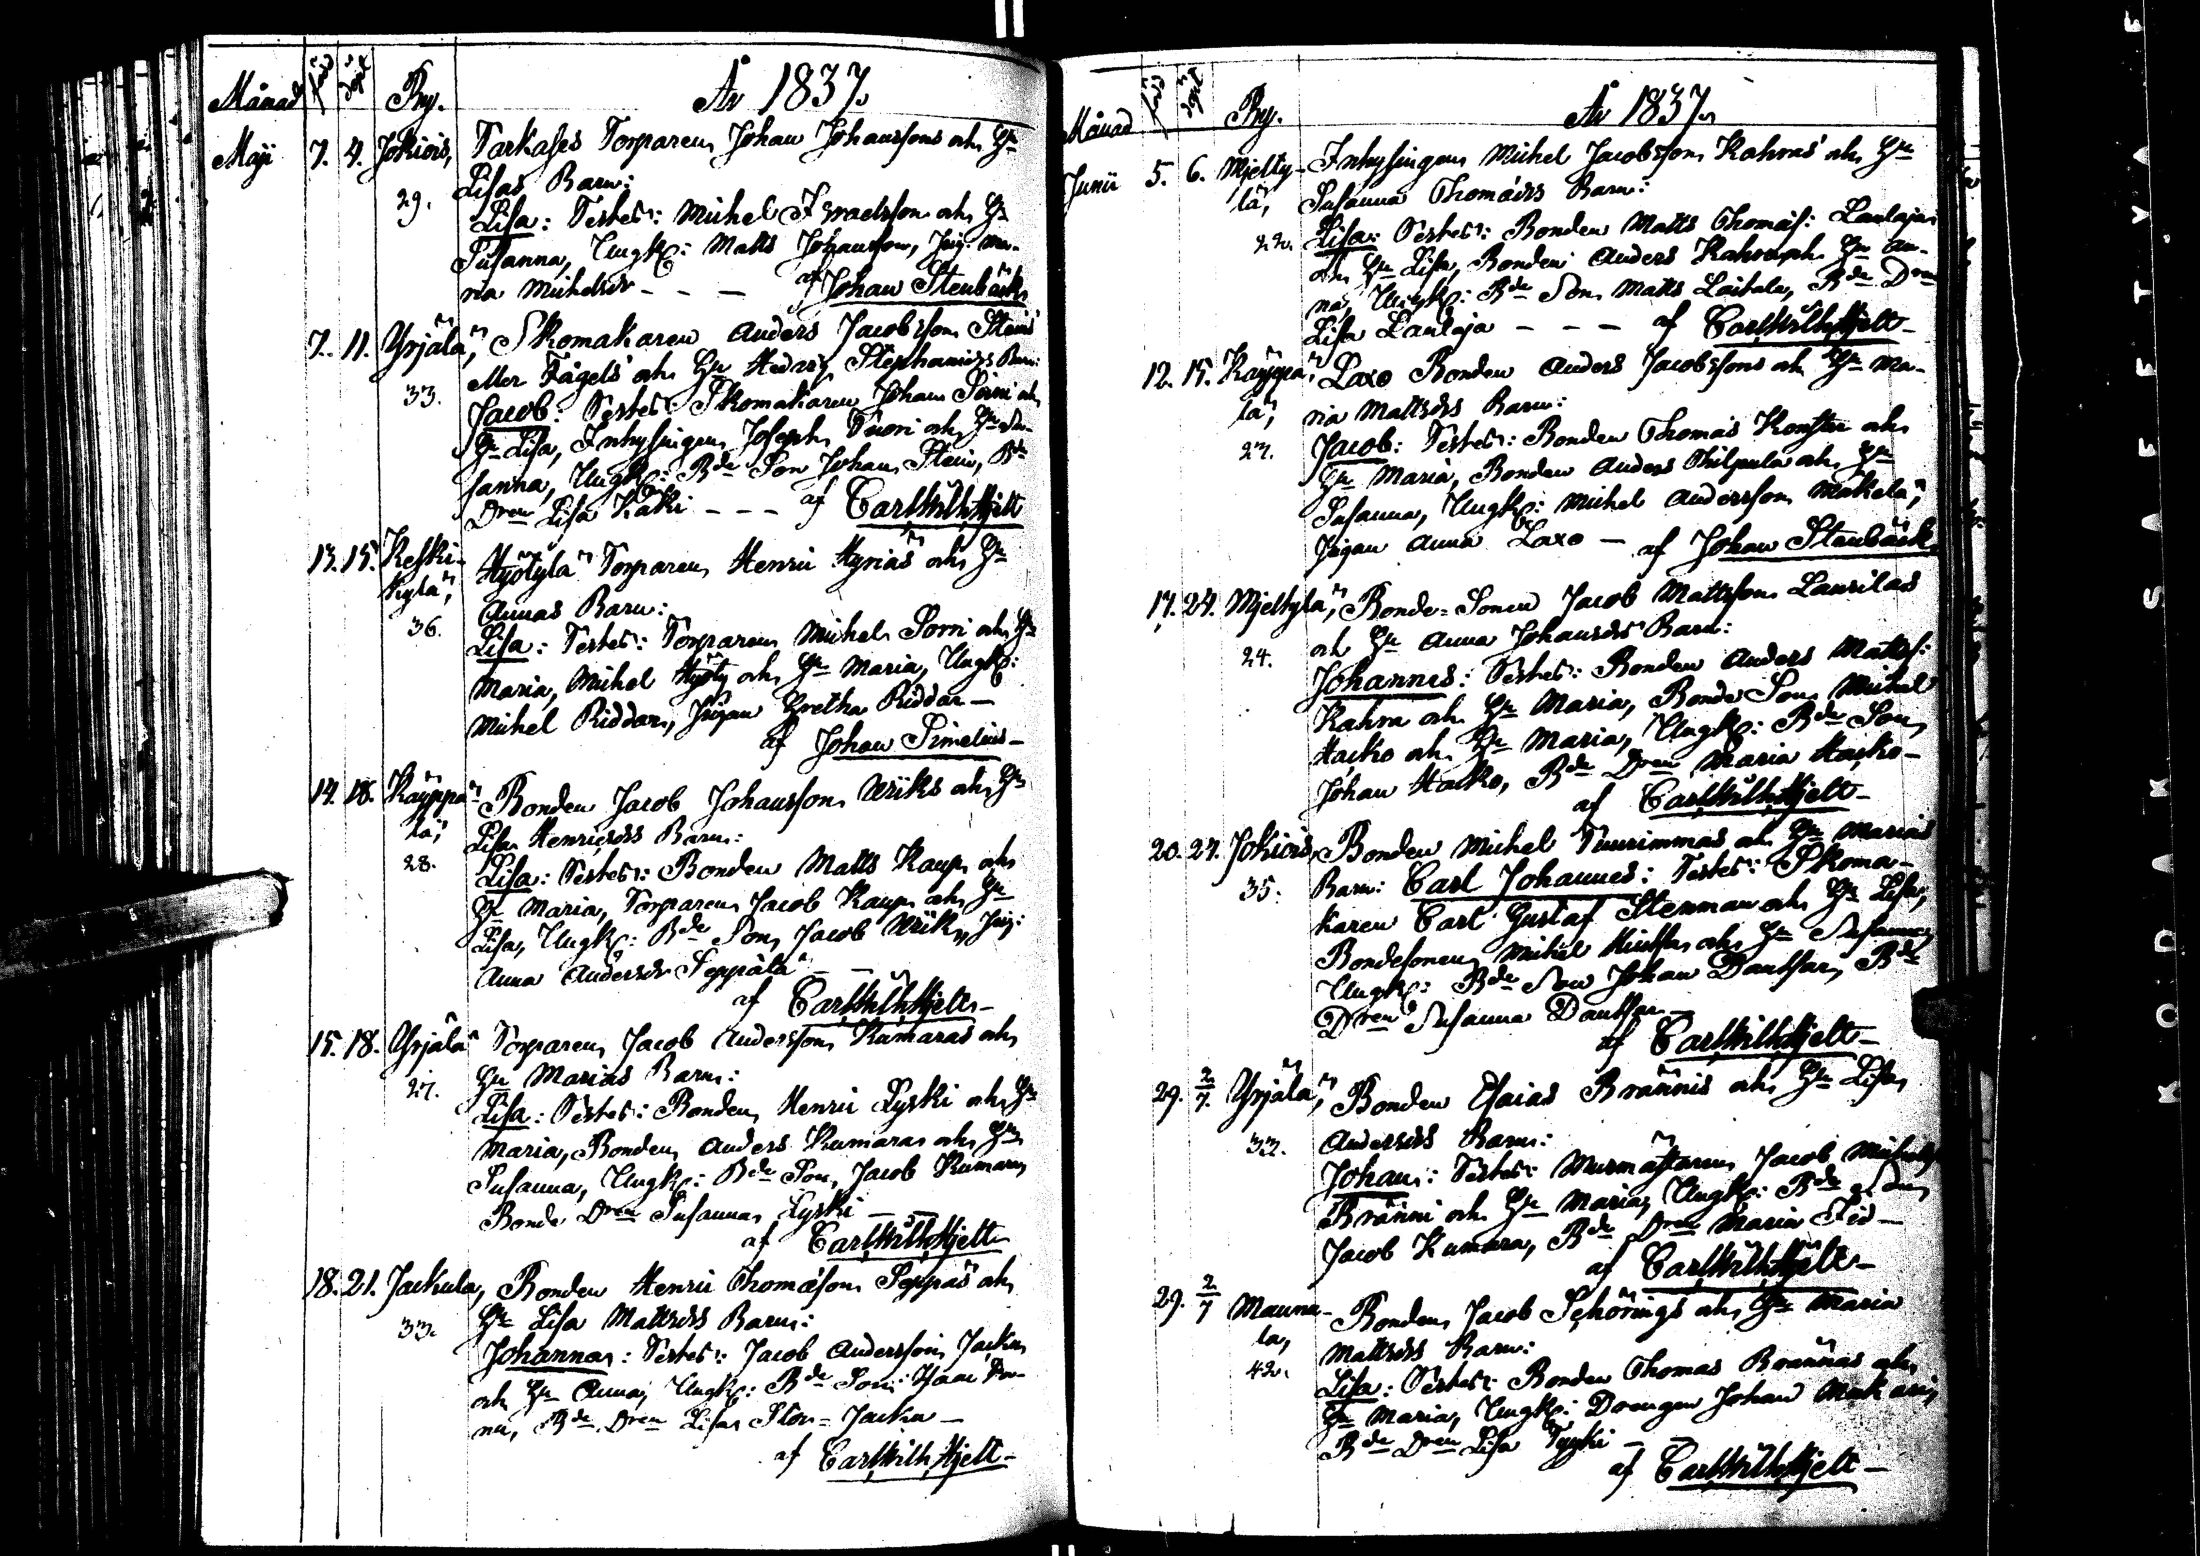 Månad född döpt By. År 1837.
Maji 7. 9. Jokiois, Tarkases Torparen Johan Johanssons och Hu
29. Lisas Barn:
Lisa: Testes: Michel Israelsson och Hu
Susanna, Ungk: Matts Johansson, Pig: Ma-
ria Michelsdr - - - af Johan Stenbäck
7. 11. Yrjälä, Skomakaren Anders Jacobsson Steins
eller Fågels och Hu Hedvig Stephansdrs Barn:
33. Jacob: Testes: Skomakaren Johan Sorri och
Hu Lisa, Inhysingen Joseph Tuori och Hu Su-
sanna, Ungk: Bde Son Johan Stein, Bde
Dren Lisa Kaki - - - af Carl Wilh Hjelt
13. 15. Keski- Hyötylä Torparen Henric Hyriäs och Hu
kylä, Annas Barn:
36. Lisa: Testes: Torparen Michel Sorri och Hu
Maria, Michel Hyöty och Hu Maria, Ungk:
Michel Riddar, Pigan Gretha Riddar -
af Johan Simelius -
14. 18. Käyppä- Bonden Jacob Johansson Wriks och Hu
lä, Lisa Henricsdrs Barn:
28. Lisa: Testes: Bonden Matts Kaup och
Hu Maria, Torparen Jacob Kaup och Hu
Lisa, Ungk: Bde Son Jacob Wrik, Pig:
Anna Andersdr Seppälä - -
af Carl Wilh Hjelt -
15. 18. Yrjälä Torparen Jacob Andersson Kumaras och
Hu Marias Barn:
27. Lisa: Testes: Bonden Henric Lyski och Hu
Maria, Bonden Anders Kumara och Hu
Susanna, Ungk: Bde Son Jacob Kumara,
Bonde Dren Susanna Lyski - -
af Carl Wilh Hjelt
18. 21. Jackula, Bonden Henric Thomasson Seppäs och
Hu Lisa Mattsdrs Barn:
33. Johanna: Testes: Jacob Andersson Jacku
och Hu Anna, Ungk: Bde Son: Isaac
Bde Dren Lisa Stor-Jacku -
af Carl Wilh Hjelt -
Månad född döpt By. År 1837.
Junii 5. 6. Mjelty- Inhysingen Michel Jacobsson Kahras och Hu
lä, Susanna Thomasdrs Barn:
22. Lisa: Testes: Bonden Matts Thomas: Laulaja
och Hu Lisa, Bonden Anders Kahra och Hu An-
na, Ungk: Bde Son Matts Laitala, Bde Dren
Lisa Laulaja - - - af Carl Wilh Hjelt -
12. 15. Käyppä- Laxo Bonden Anders Jacobssons och Hu Ma-
lä, ria Mattsdrs Barn:
27. Jacob: Testes: Bonden Thomas Konster och
Hu Maria, Bonden Anders Philpula och Hu
Susanna, Ungk: Michel Andersson Mäkelä,
Pigan Anna Laxo - af Johan Stenbäck.
17. 24. Mjeltylä, Bonde-Sonen Jacob Mattsson Laurilas
och Hu Anna Johansdrs Barn:
24. Johannes: Testes: Bonden Anders Matts:
Kahra och Hu Maria, Bonde Son Michel
Hacko och Hu Maria, Ungk: Bde Son
Johan Hacko, Bde Dren Maria Hacko -
af Carl Wilh Hjelt -
20. 27. Jokiois, Bonden Michel Tuurinmas och Hu Marias
35. Barn: Carl Johannes: Testes: Skoma-
karen Carl Gustaf Stenman och Hu Lisa,
Bondesonen Michel och Hu Susanna
Ungk: Bde Son Johan Dantsar, Bde
Dren Susanna Dantsar -
af Carl Wilh Hjelt -
29. 2/7. Yrjälä, Bonden Esaias Brännis och Hu Lisa
33. Andersdrs Barn:
Johan: Testes: Murmästaren Jacob Michels
Bränni och Hu Maria, Ungk: Bde Son
Jacob Kumara, Bde Dren Maria Fid -
af Carl Wilh Hjelt -
29. 2/7 Mauna- Bonden Jacob Schörings och Hu Maria
la, Mattsdrs Barn:
42. Lisa: Testes: Bonden Thomas Brännäs och
Hu Maria, Ungk: Drengen Johan
Bde Dren Lisa Tyyki - -
af Carl Wilh Hjelt -
KODAK SAFETY